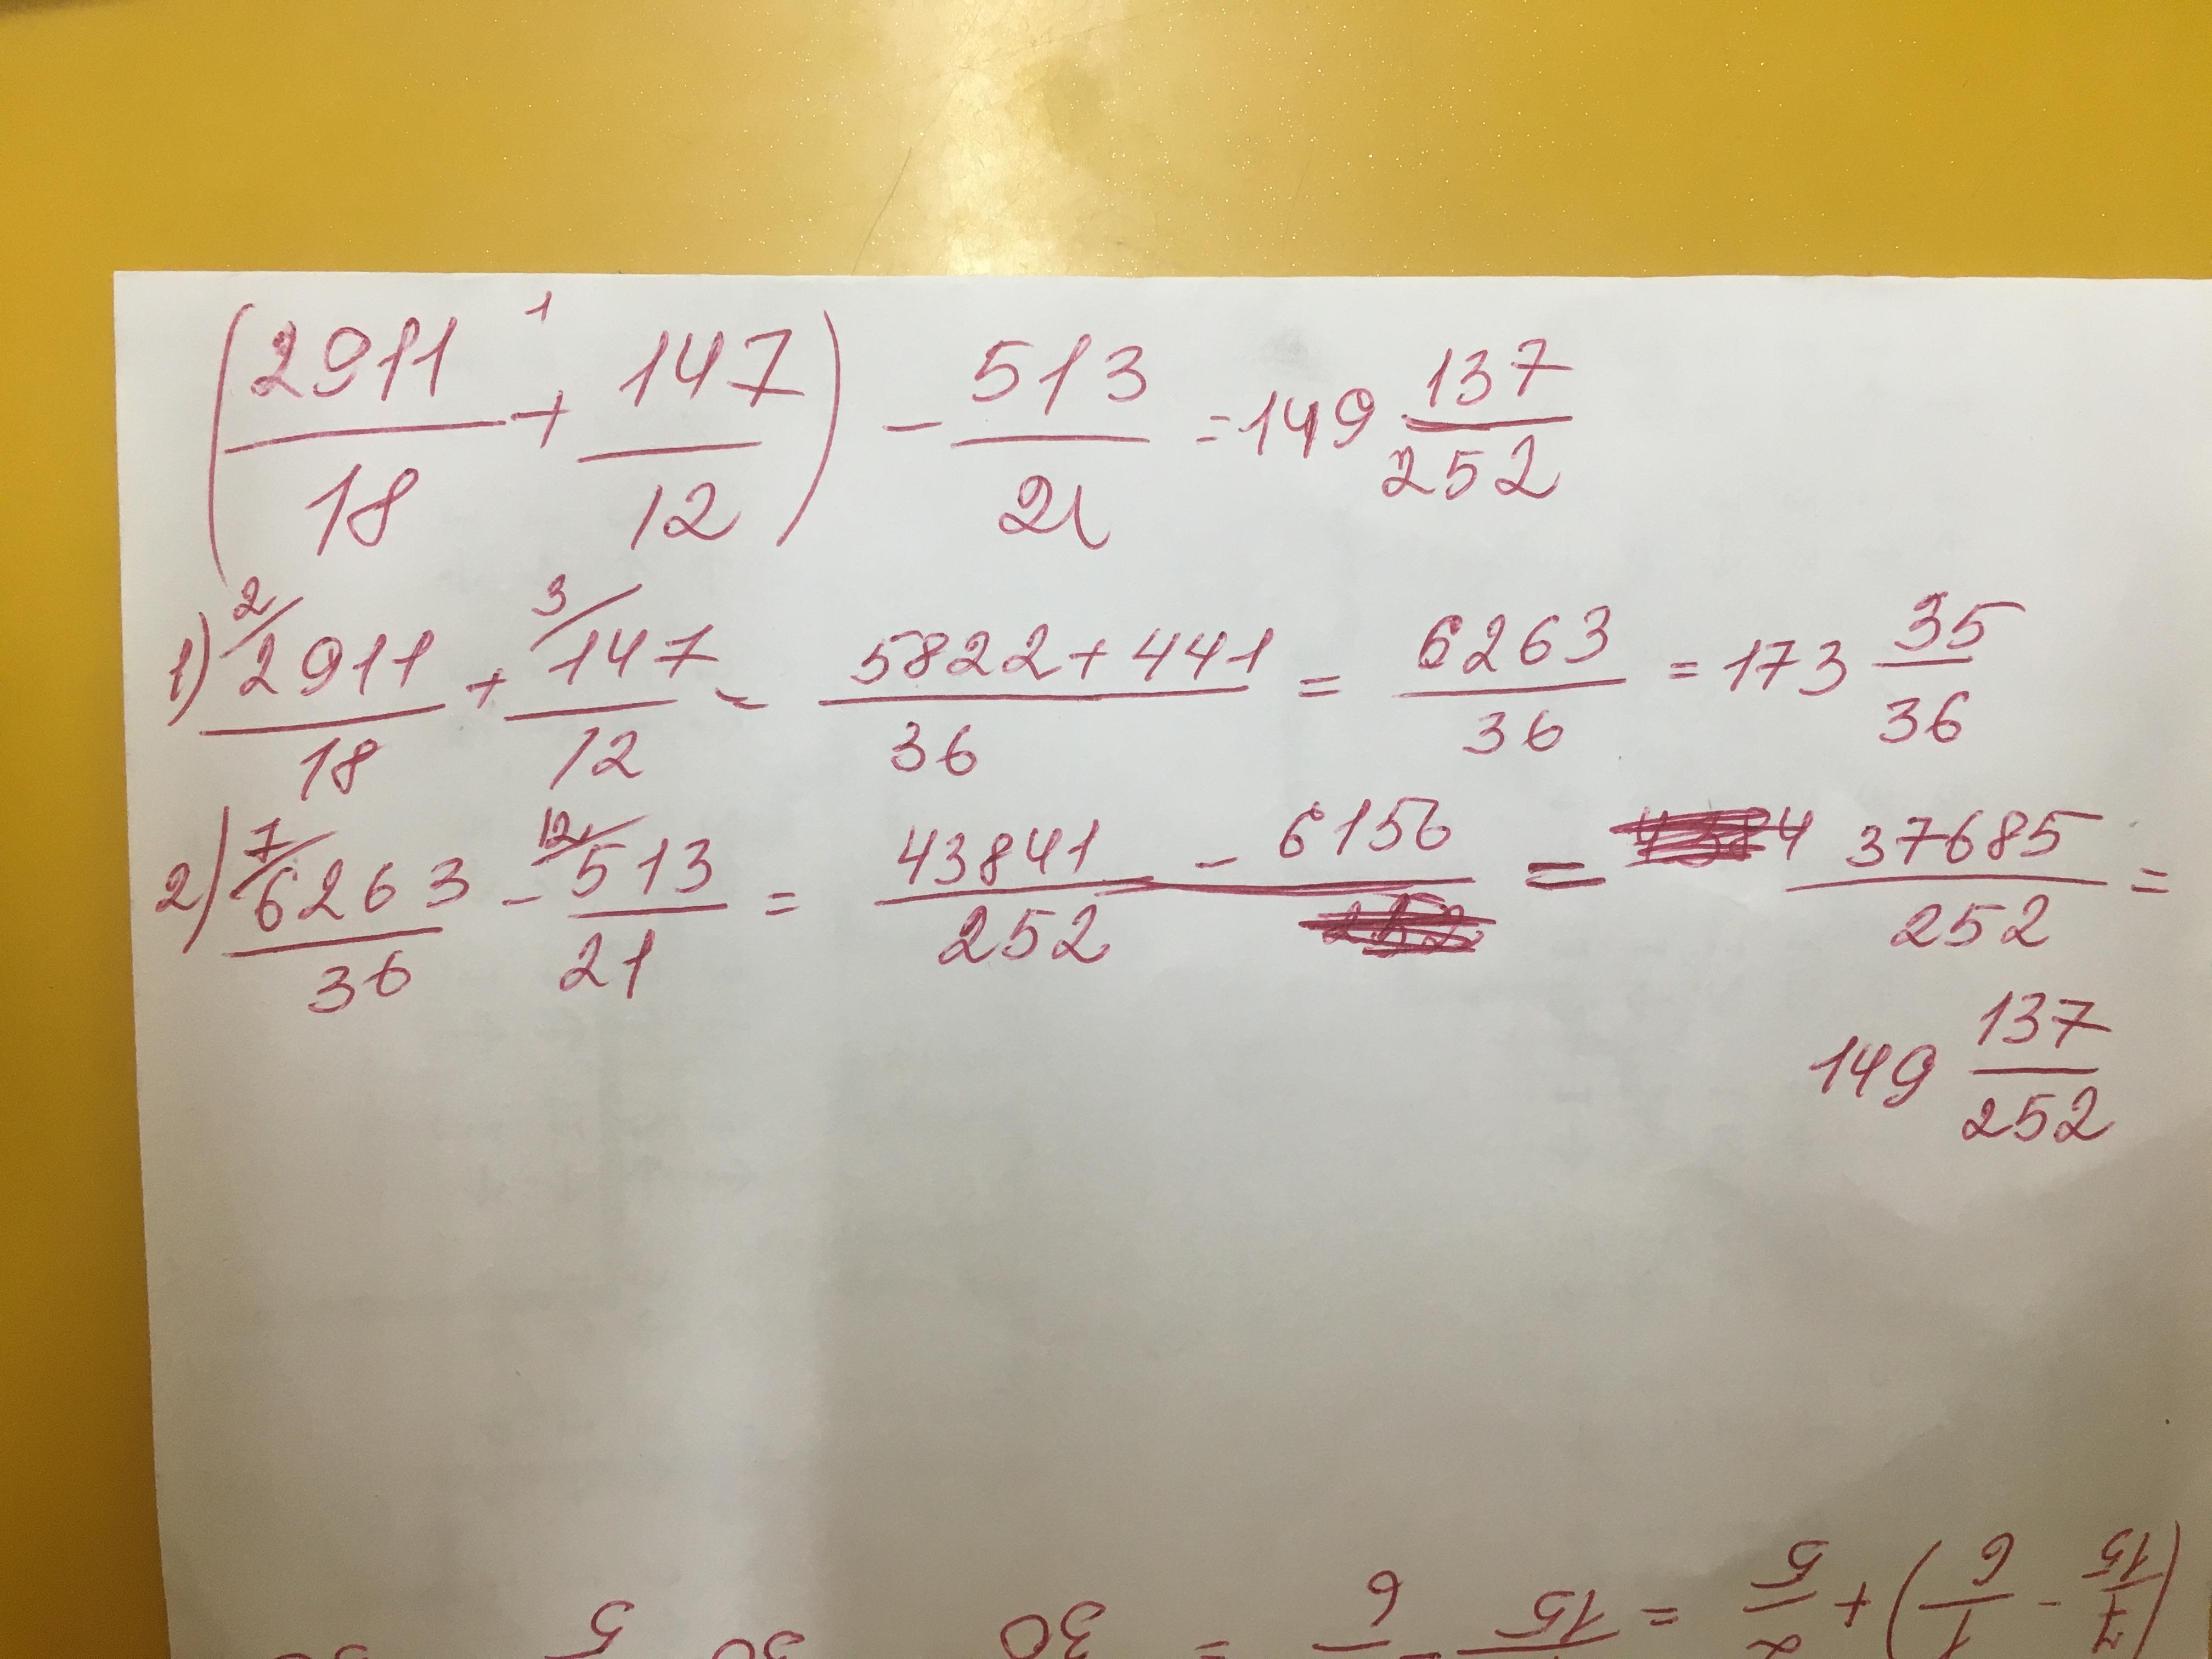 (2911/18 + 147/12) - 513/21 = 149 137/252
1
1) 2/ 2911/18 + 3/ 147/12 = (5822 + 441)/36 = 6263/36 = 173 35/36
2) 7/ 6263/36 - 12/ 513/21 = (43841 - 6156)/252 = 37685/252 =
149 137/252
(7/15 - 1/6) + 2/5 =